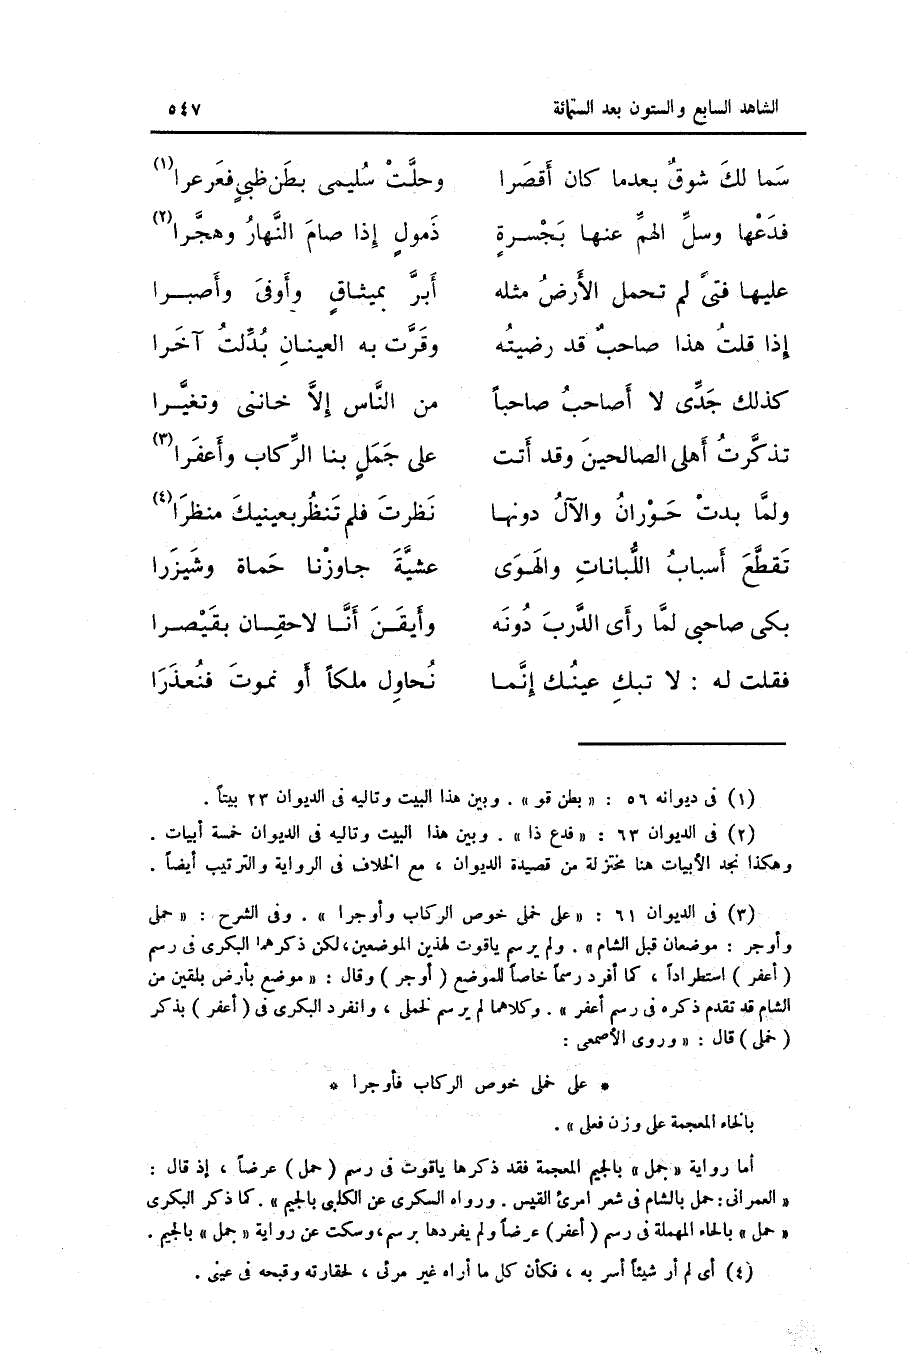 الشاهد السابع والستون بعد الستمائة ٥٤٧
سَما لكَ شوقٌ بعدما كان أقصَرا وحلَّتْ سُليمى بطَن ظبيٍ فعَرعرا(١)
فدَعْها وسلِّ الهمَّ عنها بَجْسـرةٍ ذَمولٍ إذا صامَ النَّهارُ وهجَّرا(٢)
عليـها فتىً لم تـحمل الأرضُ مثله أبرَّ بميثـاقٍ وأوفىَ وأصبـرا
إذا قلتُ هذا صاحبٌ قد رضيتُه وقرَّت به العينـانِ بُدِّلتُ آخَرا
كذلك جَدِّى لا أصاحبُ صاحباً من النَّاس إلاَّ خـاننى وتغيَّـرا
تذكَّرتُ أهلى الصالحينَ وقد أتت على جَمَلٍ بنـا الرِّكاب وأعفَرا(٣)
ولمَّا بـدتْ حَـوْرانُ والآلُ دونهـا نَظرتَ فلم تَنظُر بعينيكَ منظرَا(٤)
تَقطَّعَ أسبابُ اللُّبانـاتِ والهَـوَى عشيَّةَ جاوزْنا حَماة وشَيزَرا
بكى صاحبى لمَّا رأى الدَّربَ دُونَه وأيقَـنَ أنَّـا لاحقِـان بقَيْصـرا
فقلت له : لا تبكِ عينُـك إنَّمـا نُحاوِل ملكاً أو نموتَ فنُعذَرَا
(١) فى ديوانه ٥٦ : « بطن قو » . وبين هذا البيت وتاليه فى الديوان ٢٣ بيتاً .
(٢) فى الديوان ٦٣ : « فدع ذا » . وبين هذا البيت وتاليه فى الديوان خمسة أبيات .
وهكذا نجد الأبيات هنا مختزلة من قصيدة الديوان ، مع الخلاف فى الرواية والترتيب أيضاً .
(٣) فى الديوان ٦١ : « على خملى خوص الركاب وأوجرا » . وفى الشرح : « خملى
وأوجر : موضعان قبل الشام » . ولم يرسم ياقوت لهذين الموضعين، لكن ذكرهما البكرى فى رسم
( أعفر ) استطراداً ، كما أفرد رسماً خاصاً للموضع ( أوجر ) وقال : « موضع بأرض بلقين من
الشام قد تقدم ذكره فى رسم أعفر » . وكلاهما لم يرسم لخملى ، وانفرد البكرى فى ( أعفر ) بذكر
( خملى ) قال : « وروى الأصمعى :
* على خملى خوص الركاب فأوجرا *
بالخاء المعجمة على وزن فعلى » .
أما رواية « جمل » بالجيم المعجمة فقد ذكرها ياقوت فى رسم ( حمل ) عرضاً ، إذ قال :
« العمرانى : حمل بالشام فى شعر امرئ القيس . ورواه السكرى عن الكلبى بالجيم » . كما ذكر البكرى
« حمل » بالحاء المهملة فى رسم ( أعفر ) عرضاً ولم يفردها برسم، وسكت عن رواية « جمل » بالجيم .
(٤) أى لم أر شيئاً أسر به ، فكأن كل ما أراه غير مرئى ، لحقارته وقبحه فى عينى .